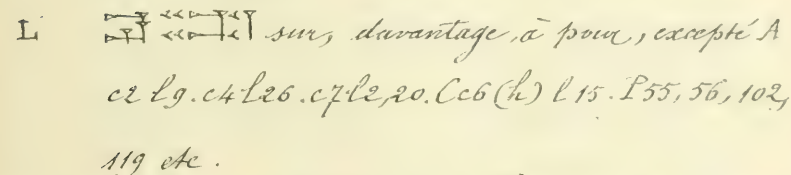 L sur, davantage, à pour, excepté A
c2 l9. c4 l26. c7 l2,20. Cc6 (h) l 15. P55, 56, 102,
119 etc.